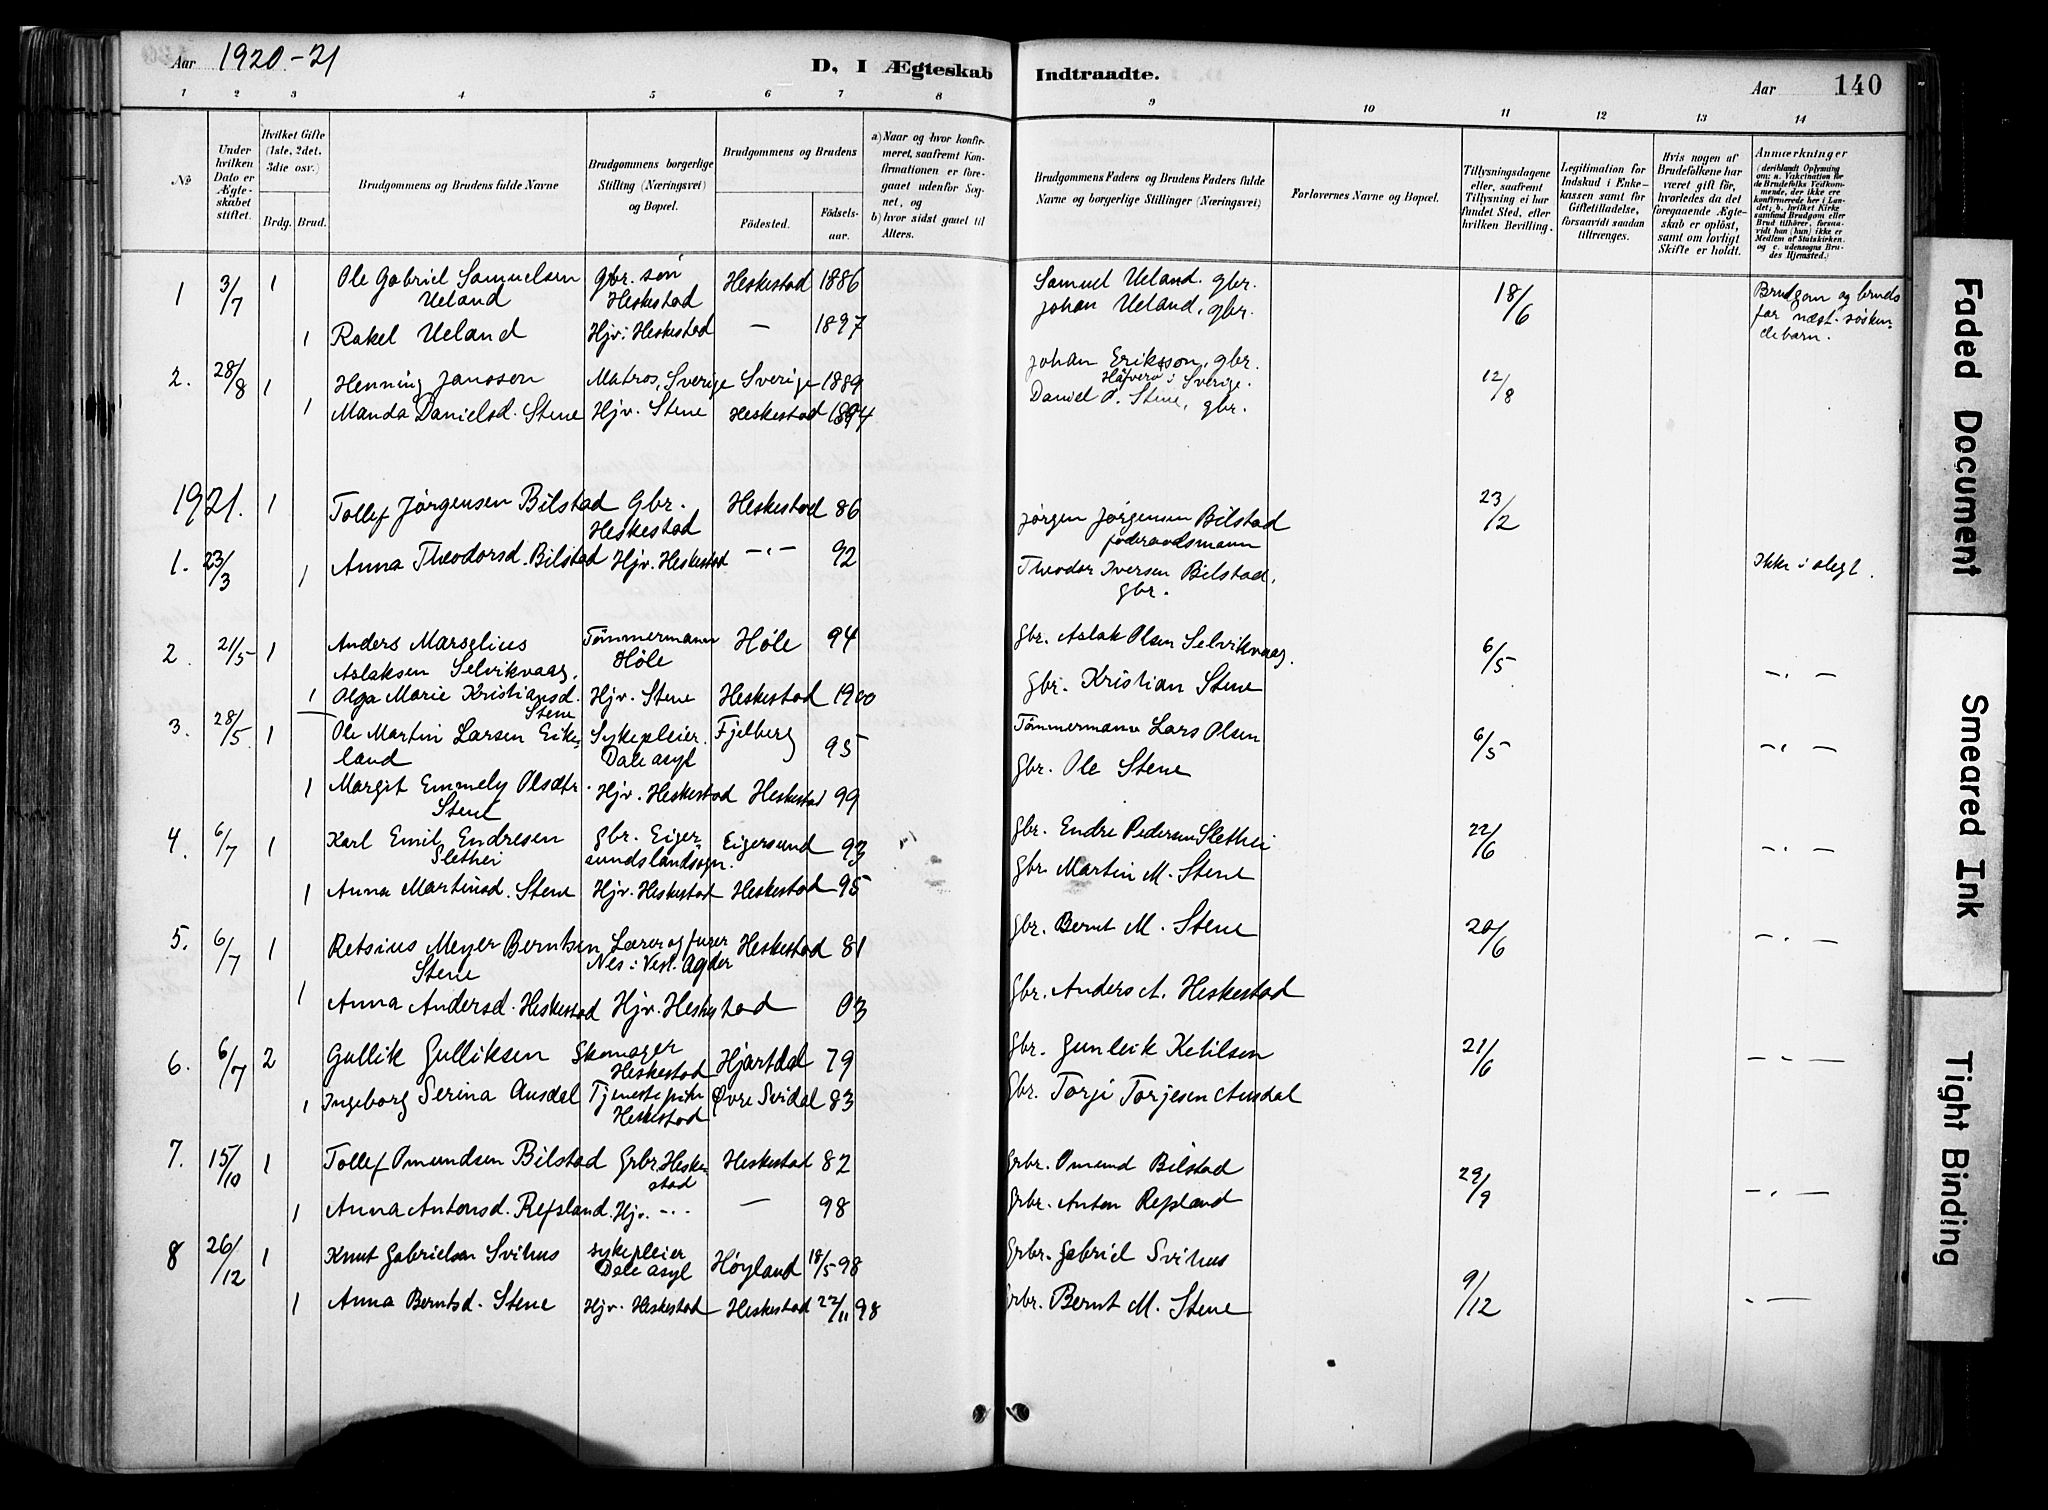 Aar 1920-21
D, I Ægteskab Indtraadte.
Aar 140
1 2 3 4 5 6 7 8 9 10 11 12 13 14
№
Under hvilken Dato er Ægteskabet stiftet.
Hvilket Gifte (1ste, 2det, 3die osv.)
Brdg. Brud.
Brudgommens og Brudens fulde Navne
Brudgommens borgerlige Stilling (Næringsvei) og Bopæl.
Brudgommens og Brudens
Fødested.
Fødselsaar.
a) Naar og hvor konfirmeret, saafremt Konfirmationen er foregaaet udenfor Sognet, og
b) hvor sidst gaaet til Alters.
Brudgommens Faders og Brudens Faders fulde Navne og borgerlige Stillinger (Næringsvei)
Forlovernes Navne og Bopæl.
Tillysningsdagene eller, saafremt Tillysning ei har fundet Sted, efter hvilken Bevilling.
Legitimation for Indskud i Enkekassen samt for Giftetilladelse, forsaavidt saadan tiltrænges.
Hvis nogen af Brudefolkene har været gift før, hvorledes da det foregaaende Ægteskab er opløst, samt om lovligt Skifte er holdt.
Anmærkninger (deriblandt Oplysning om: a. Vakcination for de Brudefolks Vedkommende, der ikke ere konfirmerede her i Landet; b. hvilket Kirkesamfund Brudgom eller Brud tilhører, forsaavidt han (hun) ikke er Medlem af Statskirken, og c. udensogns Brudes Hjemsted.)
1 3/7 1 Ole Gabriel Samuelsen Ueland Gbr. søn Heskestad Heskestad 1886 Samuel Ueland. gbr. 18/6 Brudgom og bruds far næst-søskendebarn.
1 Rakel Ueland Hjv: Heskestad — 1897 Johan Ueland, gbr.
2. 28/8 1 Henning Janssen Matros, Sverige Sverige 1889 Johan Eriksson, gbr. Häfverö i Sverige. 12/8
1 Manda Danielsd. Stene Hjv. Stene Heskestad 1894 Daniel O. Stene, gbr.
1921.
1. 23/3 1 Tollef Jørgensen Bilstad Gbr. Heskestad Heskestad 86 Jørgen Jørgensen Bilstad føderaadsmann 23/2
1 Anna Theodorsd. Bilstad Hjv. Heskestad -"- 92 Theodor Iversen Bilstad. gbr. Ikke i slegt.
2. 21/5 1 Anders Marselius Aslaksen Selvikvaag. Tømmermann Høle Høle 94 Gbr. Aslak Olsen Selvikvaag. 6/5 -"-
1 Olga Marie Kristiansd. Stene Hjv. Stene Heskestad 1900 Gbr. Kristian Stene
3. 28/5 1 Ole Martin Larsen Eikeland Sykepleier. Dale asyl Fjelberg 95 Tømmermann Lars Olsen 6/5 -"-
1 Margit Emmely Olsdtr. Stene Hjv. Heskestad Heskestad 99 Gbr. Ole Stene
4. 6/7 1 Karl Emil Endresen Slethei Gbr. Eigersundslandsogn. Eigersund 93 Gbr. Endre Pedersen Slethei 22/6 -"-
1 Anna Martinsd. Stene Hjv. Heskestad Heskestad 95 Gbr. Martin M. Stene
5. 6/7 1 Retsius Meyer Berntsen Stene Lærer og Nes i Vest. Agder Heskestad 81 Gbr. Bernt M. Stene 20/6 -"-
1 Anna Andersd. Heskestad Hjv. Heskestad 03 Gbr. Anders A. Heskestad
6. 6/7 2 Gullik Gulliksen Skomager Heskestad Hjartdal 79 Gbr. Gunleik Ketilsen 21/6 -"-
1 Ingeborg Serina Ausdal Tjenestepike Heskestad Øvre Sirdal 83 Gbr. Torje Torjesen Ausdal
7. 15/10 1 Tollef Omundsen Bilstad Grbr. Heskestad Heskestad 82 Grbr. Omund Bilstad 29/9 -"-
1 Anna Antonsd. Refsland. Hjv. -"- — 98 Grbr. Anton Refsland
8 26/12 1 Knut Gabrielsen Svihus sykepleier Dale asyl Høyland 18/5 98 Grbr. Gabriel Svihus 9/12 -"-
1 Anna Berntsd. Stene Hjv. Heskestad Heskestad 22/11 98 Grbr. Bernt M. Stene
Faded Document
Smeared Ink
Tight Binding